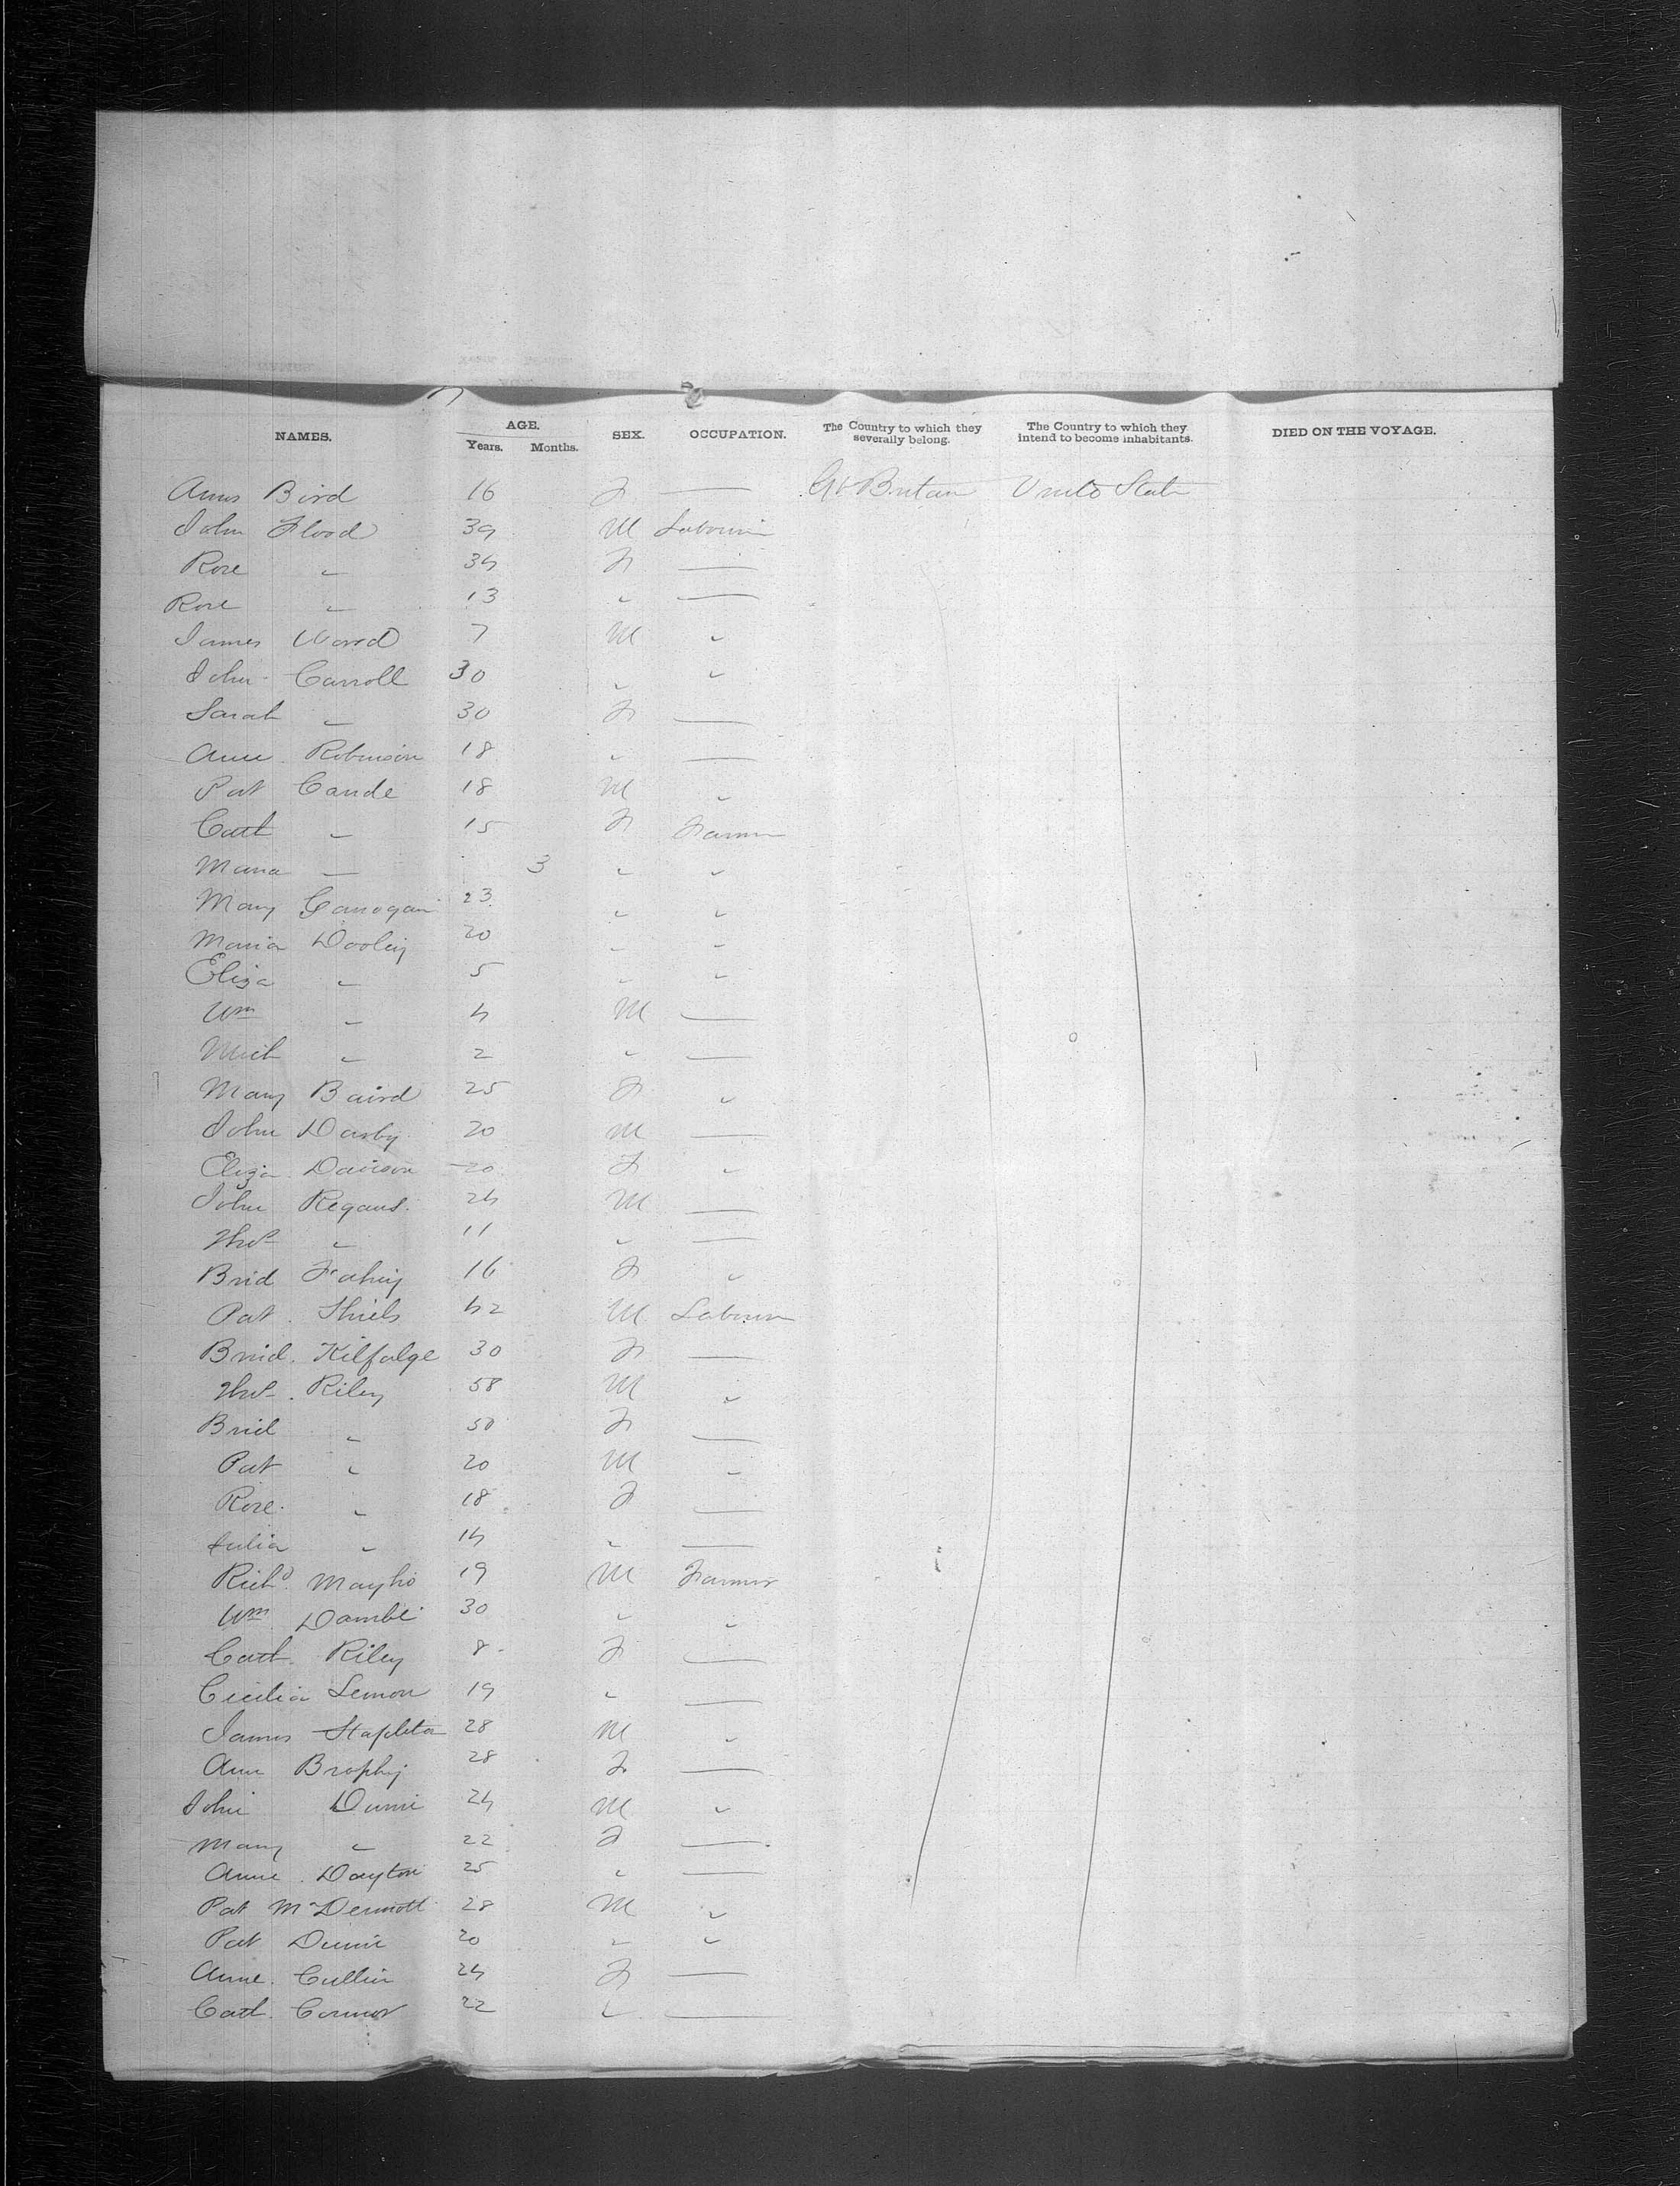 NAMES. AGE. Years. Months. SEX. OCCUPATION. The Country to which they severally belong. The Country to which they intend to become inhabitants. DIED ON THE VOYAGE.
Bird 16 F — Gt Britain United State
John Flood 39 M Labourer
Rose " 34 F —
Rose " 13 " —
James Ward 7 M "
John Carroll 30 " "
Sarah " 30 F —
Anne Robinson 18 " —
Pat Caude 18 M "
Cath " 15 F Farmer
Maria — 3 " "
Mary Ganogan 23 " "
Maria Dooley 20 " "
Eliza " 5 " "
Wm " 4 M —
Mich " 2 " —
Mary Baird 25 F "
John Darby 20 M —
Eliza Davison 20 F "
John Regans 24 M —
Thos " 11 " —
Brid Fahey 16 F "
Pat Shiels 42 M Labourer
Brid. Kilfalge 30 F —
Thos. Riley 58 M "
Brid " 50 F —
Pat " 20 M "
Rose " 18 F —
Julia " 14 " —
Richd. Mayho 19 M Farmer
Wm Dambe 30 " "
Cath. Riley 8 F —
Cicilia Lemon 19 " —
James Stapleton 28 M "
Ann Brophy 28 F —
John Dunn 24 M "
Mary " 22 F —
Anne Dayton 25 " —
Pat McDermott 28 M "
Pat Dunn 20 " "
Anne Cullin 24 F —
Cath. Connor 22 " —